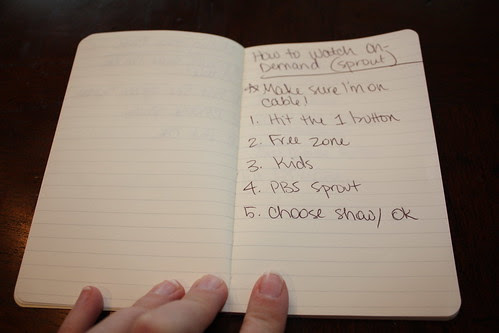 How to watch on-
Demand (sprout)
* Make sure I'm on
cable!
1. Hit the 1 button
2. Free zone
3. Kids
4. PBS sprout
5. choose show/ OK